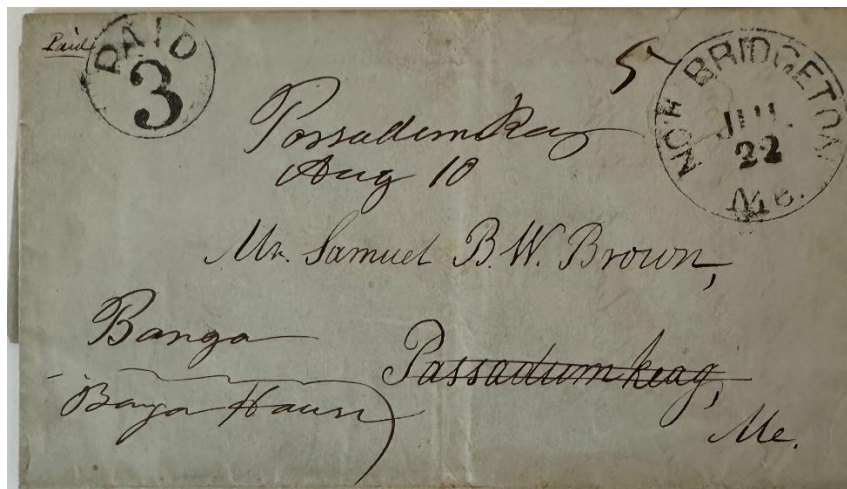 Paid
PAID
3
5
NO. BRIDGETON
JUL
22
Me.
Possadumkeag
Aug 10
Mr. Samuel B. W. Brown,
Banga
Passadumkeag,
Banga House
Me.